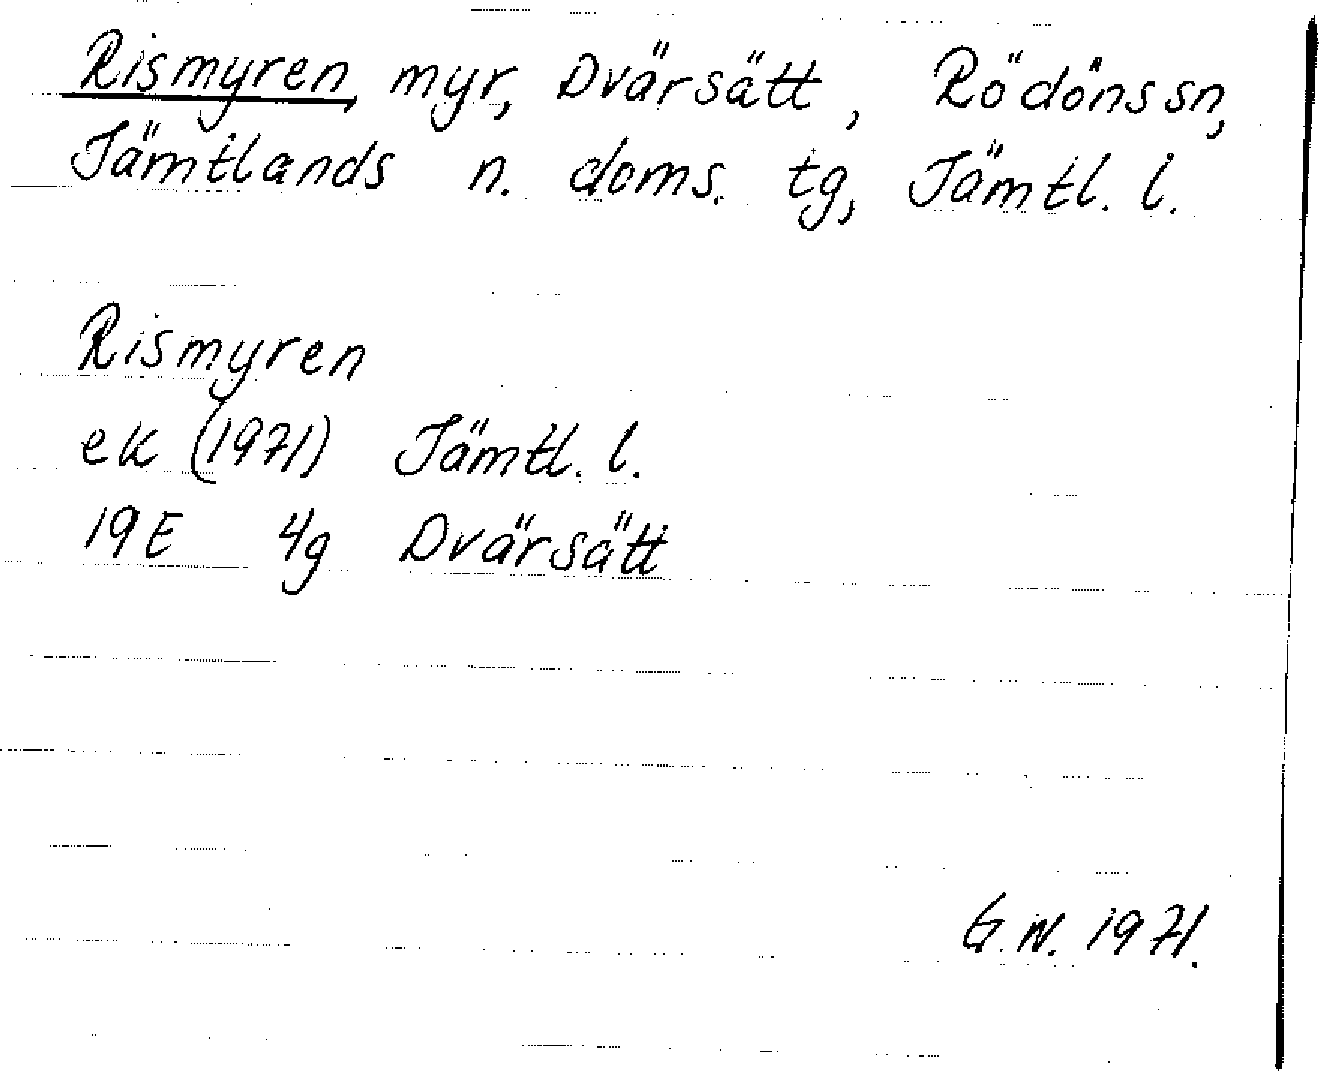 Rismyren, myr, Dvärsätt, Rödöns sn,
Jämtlands n. doms. tg, Jämtl. l.
Rismyren
ek (1971) Jämtl. l.
19E 4g Dvärsätt
G.N. 1971.